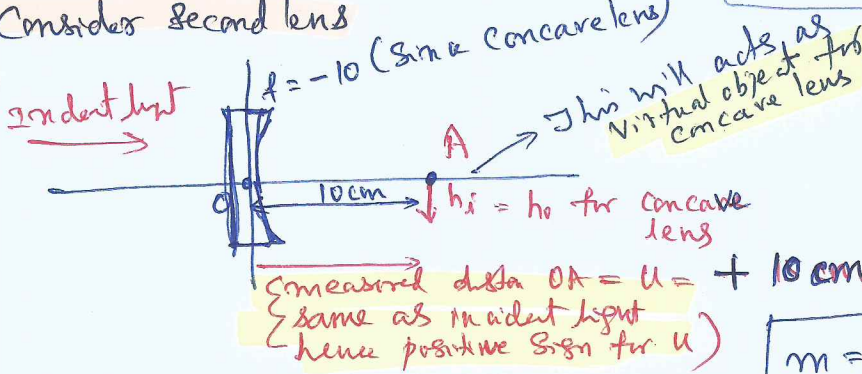 Consider Second lens
f = -10 (Since Concave lens)
Incident light
This will acts as
Virtual object for
Concave lens
A
O
10cm
hi = ho for concave
lens
{measured distan OA = u = + 10 cm
same as incident light
hence positive sign for u)
m =